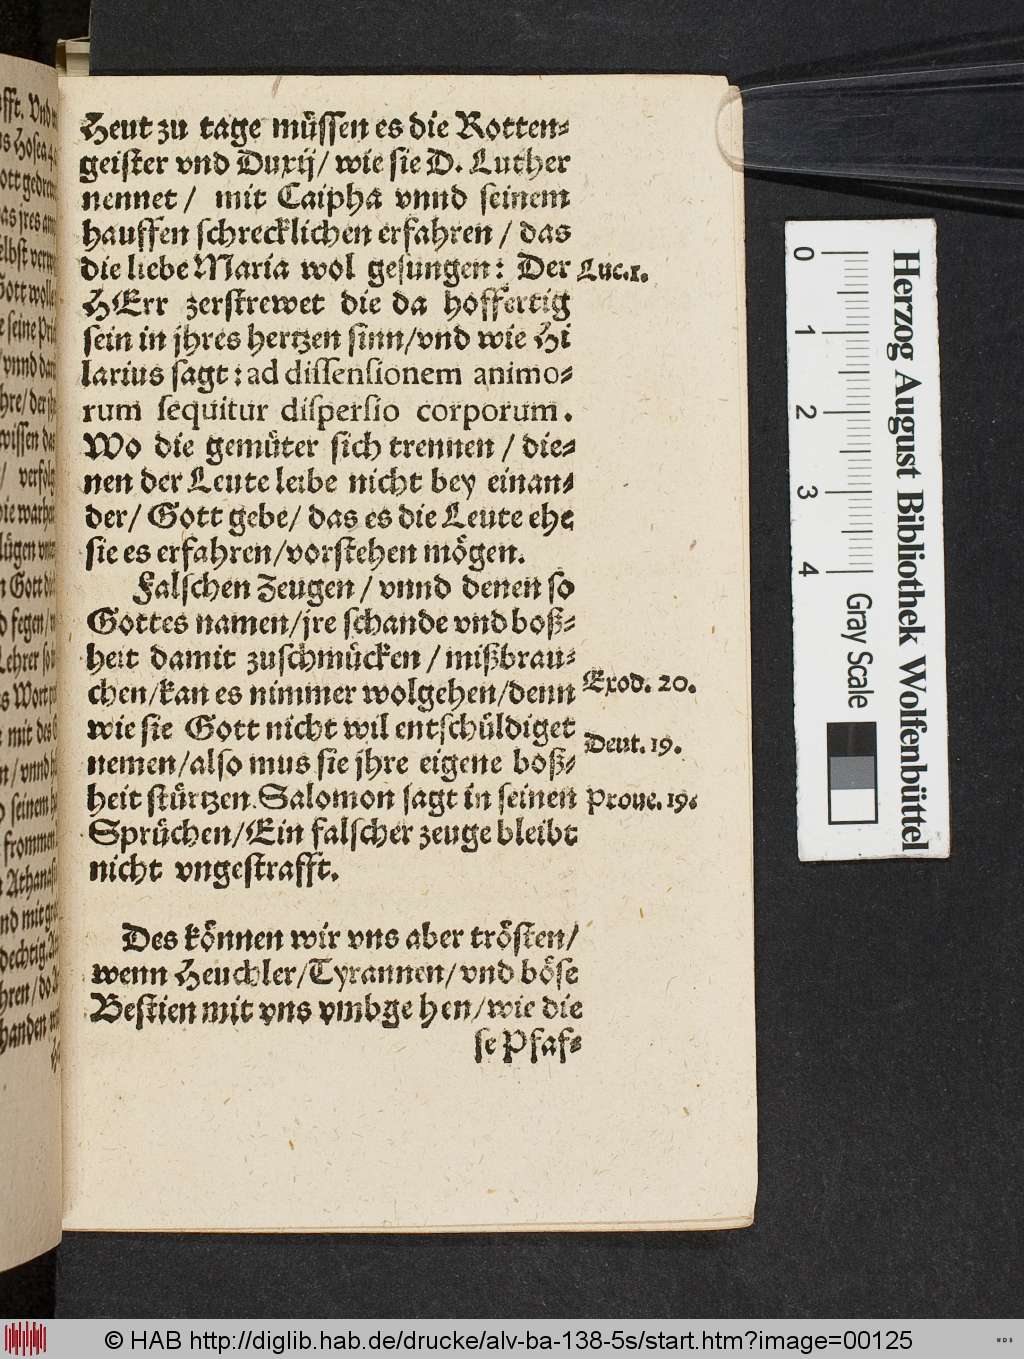 Heut zu tage müssen es die Rotten-
geister vnd Duxij/ wie sie D. Luther
nennet / mit Caipha vnnd seinem
hauffen schrecklichen erfahren / das
die liebe Maria wol gesungen: Der Luc.1.
HErr zerstrewet die da hoffertig
sein in jhres hertzen sinn/vnd wie Hi
larius sagt: ad dissensionem animo-
rum sequitur dispersio corporum.
Wo die gemüter sich trennen / die-
nen der Leute leibe nicht bey einan-
der/ Gott gebe/ das es die Leute ehe
sie es erfahren/vorstehen mögen.
Falschen Zeugen / vnnd denen so
Gottes namen/jre schande vnd boß-
heit damit zuschmücken / mißbrau-
chen/kan es nimmer wolgehen/denn Exod. 20.
wie sie Gott nicht wil entschüldiget
nemen/also mus sie jhre eigene boß- Deut. 19.
heit stürtzen. Salomon sagt in seinen Proue. 19.
Sprüchen/Ein falscher zeuge bleibt
nicht vngestrafft.
Des können wir vns aber trösten/
wenn Heuchler/Tyrannen/vnd böse
Bestien mit vns vmbgehen/wie die
se Pfaf-
0 1 2 3 4
Gray Scale
Herzog August Bibliothek Wolfenbüttel
© HAB http://diglib.hab.de/drucke/alv-ba-138-5s/start.htm?image=00125